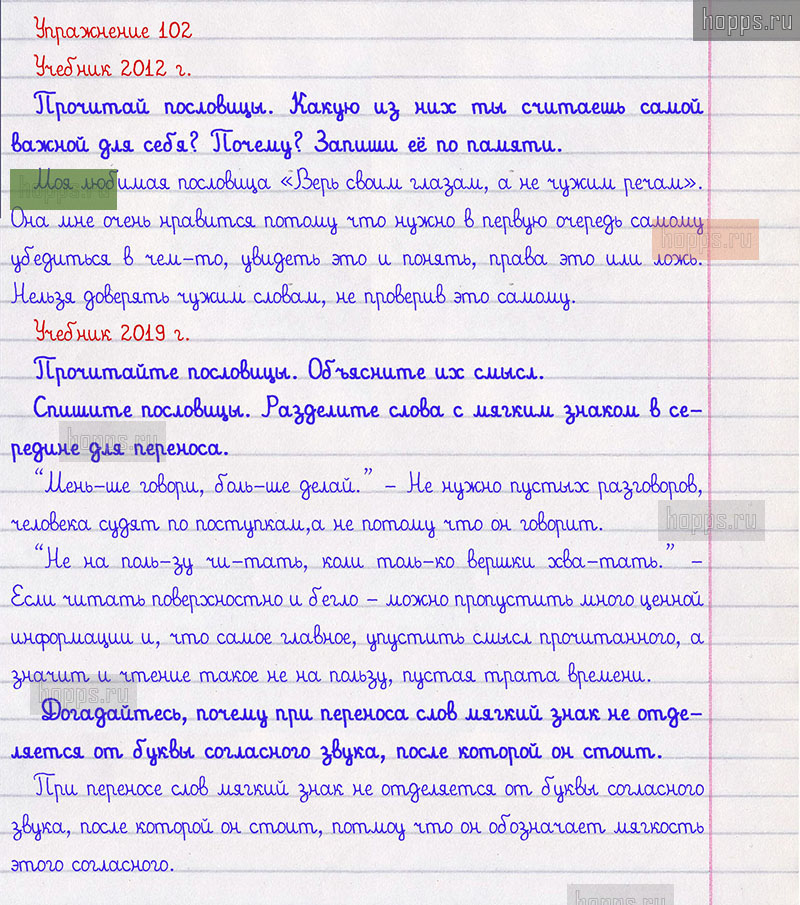 hopps.ru
Упражнение 102
Учебник 2012 г.
Прочитай пословицы. Какую из них ты считаешь самой
важной для себя? Почему? Запиши её по памяти.
Моя любимая пословица «Верь своим глазам, а не чужим речам».
hopps.ru
Она мне очень нравится потому что нужно в первую очередь самому
hopps.ru
убедиться в чем-то, увидеть это и понять, права это или ложь.
Нельзя доверять чужим словам, не проверив это самому.
Учебник 2019 г.
Прочитайте пословицы. Объясните их смысл.
Спишите пословицы. Разделите слова с мягким знаком в се-
hopps.ru
редине для переноса.
“Мень-ше говори, боль-ше делай.” - Не нужно пустых разговоров,
человека судят по поступкам,а не потому что он говорит.
hopps.ru
“Не на поль-зу чи-тать, коли толь-ко вершки хва-тать.” -
Если читать поверхностно и бегло - можно пропустить много ценной
информации и, что самое главное, упустить смысл прочитанного, а
значит и чтение такое не на пользу, пустая трата времени.
hopps.ru
Догадайтесь, почему при переноса слов мягкий знак не отде-
ляется от буквы согласного звука, после которой он стоит.
При переносе слов мягкий знак не отделяется от буквы согласного
звука, после которой он стоит, потмоу что он обозначает мягкость
этого согласного.
hopps.ru